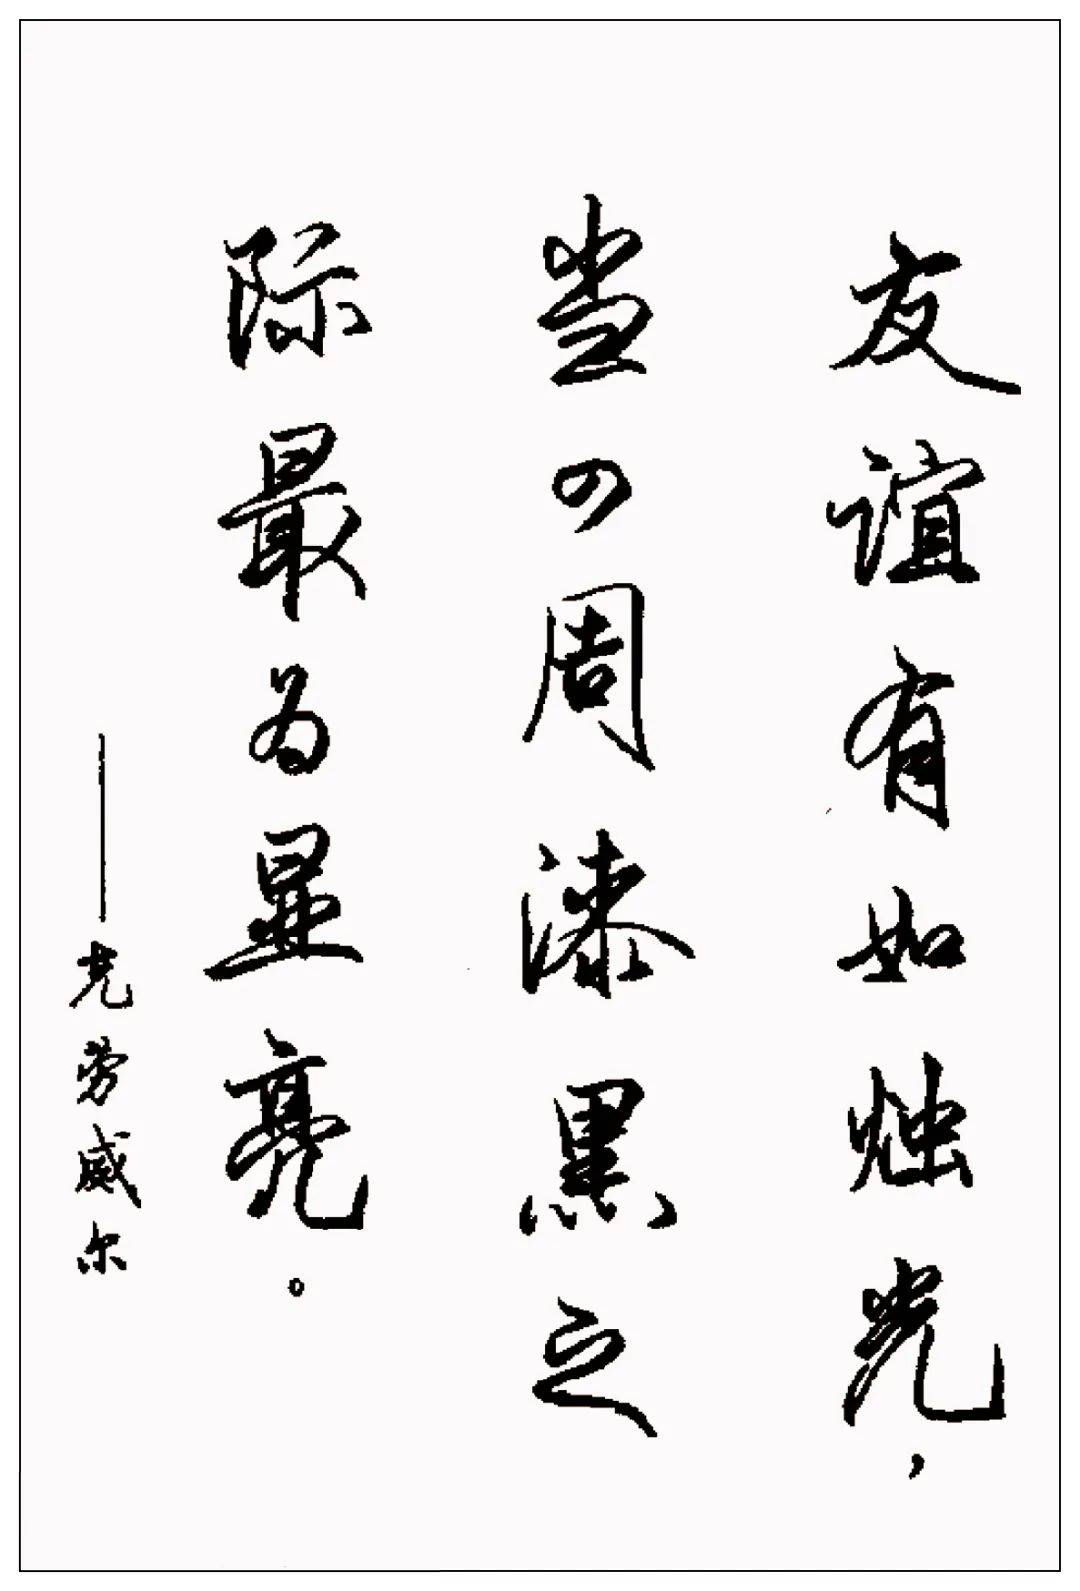 友谊有如烛光，
当四周漆黑之
际最为显亮。
——克劳威尔